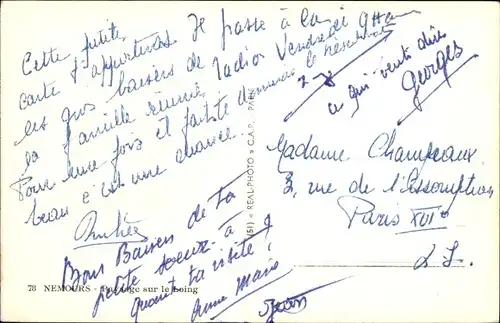 Cette petite
carte t'apportera
les gros baisers de
la famille réunie
Pour une fois il fait
beau c'est une chance.
Je passe à la
radio Vendredi
ce qui veut dire
Georges
Bons Baisers de ta
petite soeur à
quand ta visite ?
Anne Marie
Jean
Madame Champeaux
3, rue de l'Assomption
Paris XVIe
REAL-PHOTO
C.A.P.
78 NEMOURS - Paysage sur le Loing